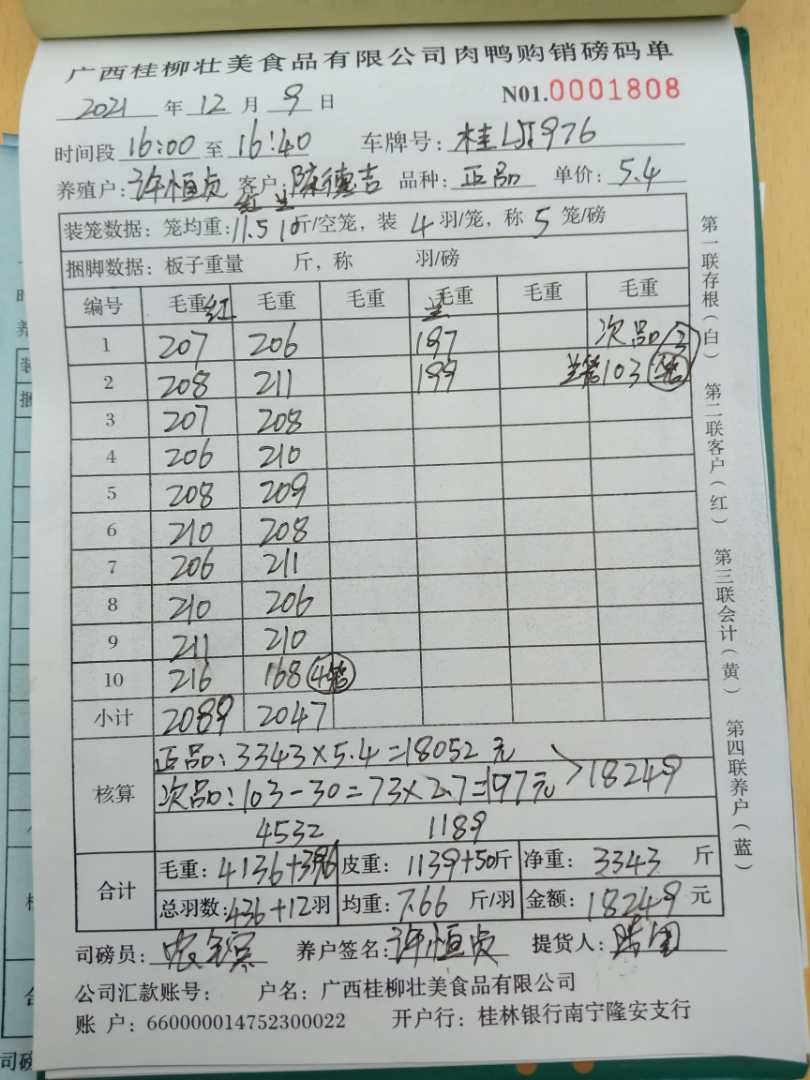 广西桂柳壮美食品有限公司肉鸭购销磅码单
2021 年 12 月 9 日 N01.0001808
时间段 16:00 至 16:40 车牌号: 桂LJ1976
养殖户: 许恒贞 客户: 陈德吉 品种: 正品 单价: 5.4
红 兰
装笼数据: 笼均重: 11.5 10 斤/空笼, 装 4 羽/笼, 称 5 笼/磅
捆脚数据: 板子重量 斤, 称 羽/磅
编号 毛重红 毛重 毛重 毛重兰 毛重 毛重
1 207 206 197 次品
2 208 211 199 兰笼103
3 207 208
4 206 210
5 208 209
6 210 208
7 206 211
8 210 206
9 211 210
10 216 168 4笼
小计 2089 2047
核算 正品: 3343×5.4=18052元
次品: 103-30=73×2.7=197元 18249
4532 1189
合计 毛重: 4136+396 皮重: 1139+50斤 净重: 3343 斤
总羽数: 436+12羽 均重: 7.66 斤/羽 金额: 18249 元
司磅员: 养户签名: 许恒贞 提货人:
公司汇款账号: 户名: 广西桂柳壮美食品有限公司
账 户: 660000014752300022 开户行: 桂林银行南宁隆安支行
第一联存根(白) 第二联客户(红) 第三联会计(黄) 第四联养户(蓝)
司磅